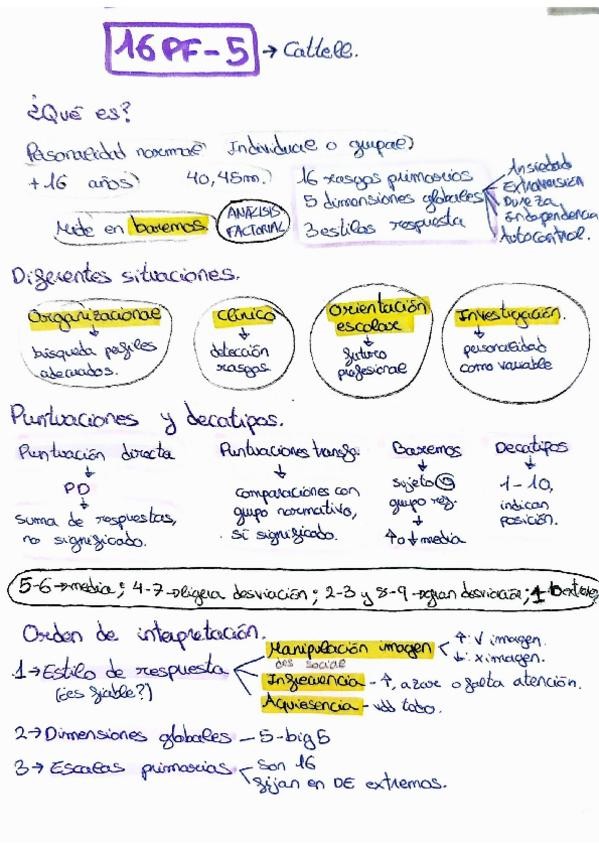 16 PF-5 → Cattell.
¿Qué es?
Personalidad normal Individual o grupal
+16 años 40,45m. 16 rasgos primarios
5 dimensiones globales
3 estilos respuesta
Ansiedad
Extraversión
Dureza
Independencia
Autocontrol.
Mide en baremos. ANÁLISIS FACTORIAL
Diferentes situaciones.
Organizacional
↓
búsqueda perfiles
adecuados.
Clínico
↓
detección
rasgos
Orientación
escolar
↓
futuro
profesional
Investigación.
↓
personalidad
como variable
Puntuaciones y decatipos.
Puntuación directa
↓
PD
↓
suma de respuestas,
no significado.
Puntuaciones transf.
↓
comparaciones con
grupo normativo,
sí significado.
Baremos
↓
sujeto
grupo ref.
↓
↑o↓media
Decatipos
↓
1-10,
indican
posición.
5-6→media; 4-7→ligera desviación; 2-3 y 8-9→gran desviación; 1
Orden de interpretación.
1→Estilo de respuesta
(¿es fiable?)
Manipulación imagen
des social
↑: √ imagen.
↓: x imagen.
Infrecuencia - ↑, azar o falta atención.
Aquiesencia - todo.
2→Dimensiones globales - 5-big5
3→Escalas primarias
son 16
fijan en DE extremos.